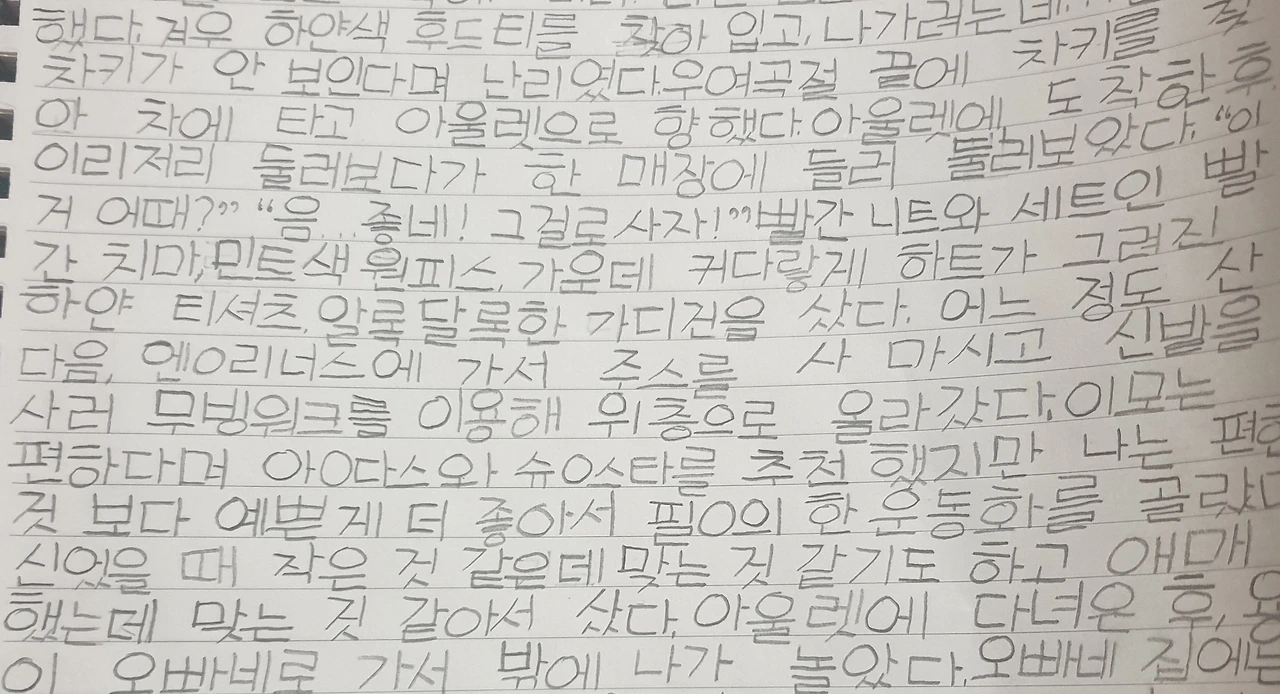 했다. 겨우 하얀색 후드티를 찾아 입고, 나가려는데...
차키가 안 보인다며 난리였다. 우여곡절 끝에 차키를 찾
아 차에 타고 아울렛으로 향했다. 아울렛에 도착한 후
이리저리 둘러보다가 한 매장에 들러 둘러보았다. “이
거 어때?” “음... 좋네! 그걸로 사자!” 빨간 니트와 세트인 빨
간 치마, 민트색 원피스, 가운데 커다랗게 하트가 그려진
하얀 티셔츠, 알록달록한 가디건을 샀다. 어느 정도 산
다음, 엔O리너스에 가서 주스를 사 마시고 신발을
사러 무빙워크를 이용해 위층으로 올라갔다. 이모는
편하다며 아O다스와 슈O스타를 추천했지만 나는 편한
것 보다 예쁜게 더 좋아서 필O의 한 운동화를 골랐다
신었을 때 작은 것 같은데 맞는 것 같기도 하고 애매
했는데 맞는 것 같아서 샀다. 아울렛에 다녀온 후,
이 오빠네로 가서 밖에 나가 놀았다. 오빠네 집에는